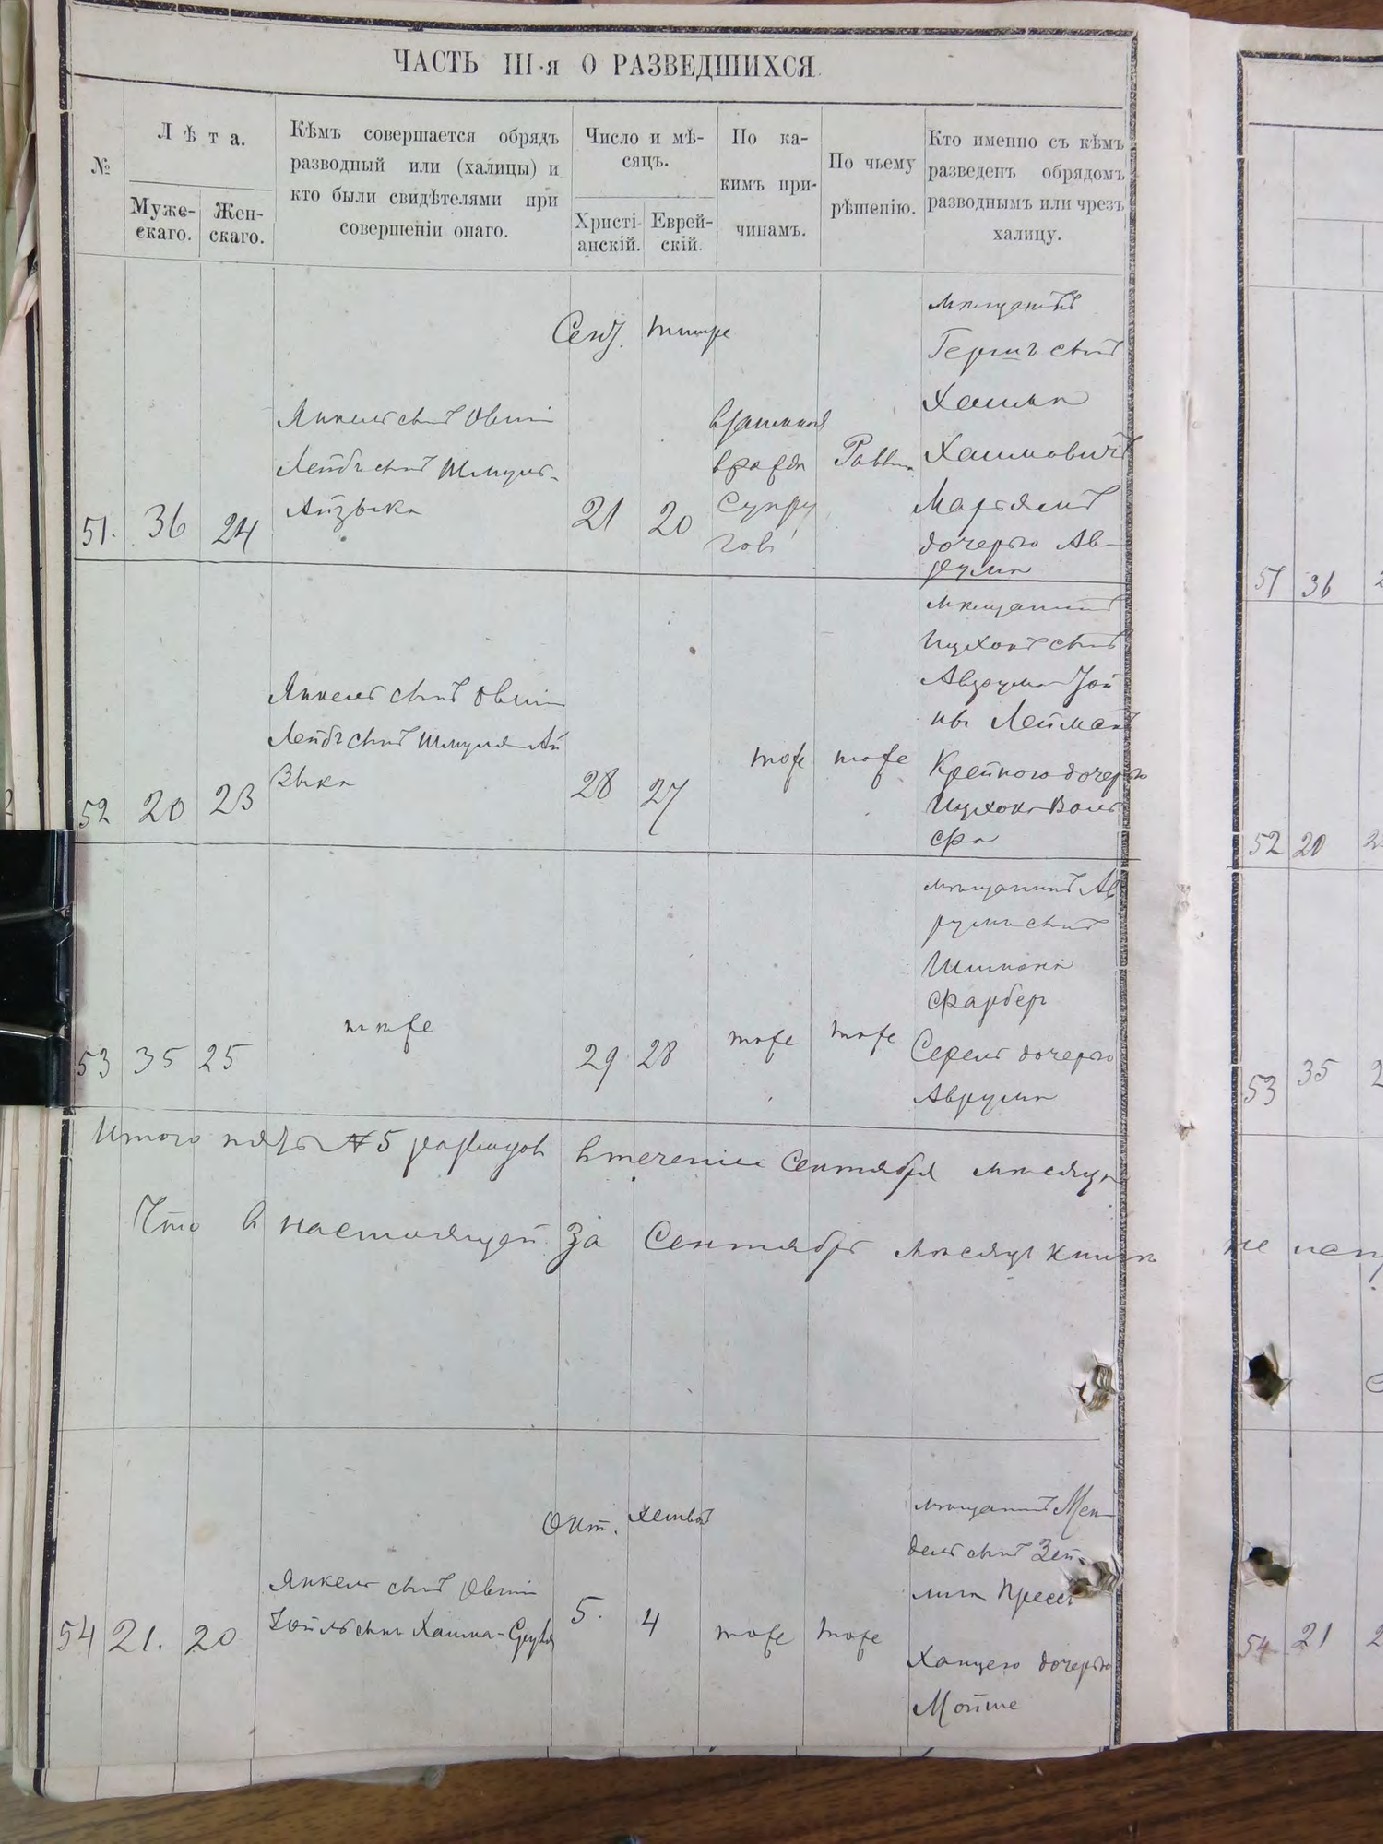 ЧАСТЬ III-я О РАЗВЕДШИХСЯ.
№
Лѣта.
Мужескаго.
Женскаго.
Кѣмъ совершается обрядъ
разводный или (халицы) и
кто были свидѣтелями при
совершеніи онаго.
Число и мѣ-
сяцъ.
Христі-
анскій.
Еврей-
скій.
По ка-
кимъ при-
чинамъ.
По чьему
рѣшенію.
Кто именно съ кѣмъ
разведенъ обрядомъ
разводнымъ или чрезъ
халицу.
Сент. тишре
51. 36 24
Янкель сынъ Овшіи
Лейбъ сынъ Шмуль-
Айзыка
21 20
взаимная
вражда
супру
говъ
мѣщанинъ
Гершъ сынъ
Хаима
Хаимовичъ
Марьямъ
дочерью Ав-
рума
52 20 23
Янкель сынъ Овшіи
Лейбъ сынъ Шмуля Ай
зыка
28 27
тоже тоже
мѣщанинъ
Ицхокъ сынъ
Лейманъ
дочерью
Ицхока Воль
фа
53 35 25
тоже
29 28
тоже тоже
мѣщанинъ Ав
румъ сынъ
Шимона
Фарбер
Серель дочерью
Аврума
Итого пять № 5 разводовъ в теченіи Сентября мѣсяца
Что в настоящей за Сентябрь мѣсяцъ книгѣ не
Окт. хешвон
54 21. 20
Янкель сынъ Овшіи
5. 4
тоже тоже
мѣщанинъ Мен-
дель сынъ Зей-
дочерью
Мойше
51 36
52 20
53 35
54 21